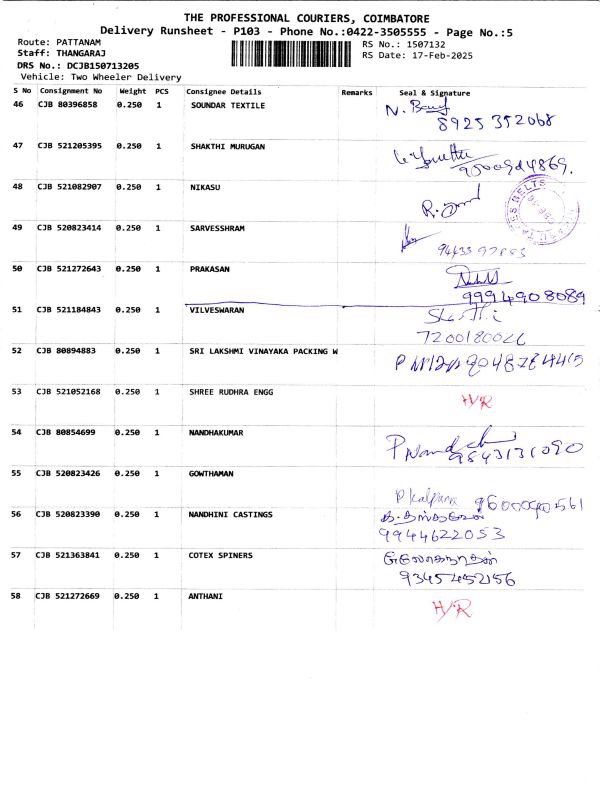 THE PROFESSIONAL COURIERS, COIMBATORE
Delivery Runsheet - P103 - Phone No.:0422-3505555 - Page No.:5
Route: PATTANAM
RS No.: 1507132
Staff: THANGARAJ
RS Date: 17-Feb-2025
DRS No.: DCJB150713205
Vehicle: Two Wheeler Delivery
S No Consignment No Weight PCS Consignee Details Remarks Seal & Signature
46 CJB 80396858 0.250 1 SOUNDAR TEXTILE
8925352068
47 CJB 521205395 0.250 1 SHAKTHI MURUGAN
48 CJB 521082907 0.250 1 NIKASU
BELTS
49 CJB 520823414 0.250 1 SARVESSHRAM
50 CJB 521272643 0.250 1 PRAKASAN
9994908089
51 CJB 521184843 0.250 1 VILVESWARAN
52 CJB 80894883 0.250 1 SRI LAKSHMI VINAYAKA PACKING W
53 CJB 521052168 0.250 1 SHREE RUDHRA ENGG H/R
54 CJB 80854699 0.250 1 NANDHAKUMAR
9843131090
55 CJB 520823426 0.250 1 GOWTHAMAN
P kalpana
56 CJB 520823390 0.250 1 NANDHINI CASTINGS
9944622053
57 CJB 521363841 0.250 1 COTEX SPINERS
9345452156
58 CJB 521272669 0.250 1 ANTHANI H/R